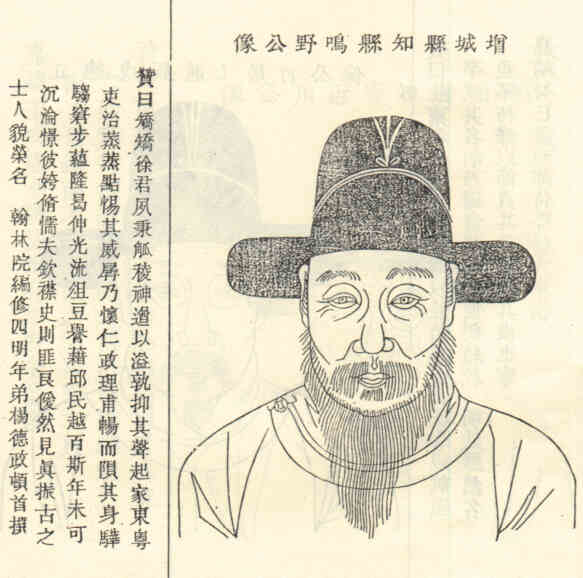 增城縣知縣鳴野公像
贊曰矯矯徐君夙秉觚稜神遒以溢孰抑其聲起家東粵
吏治蒸蒸黠惕其威孱乃懷仁政理甫暢而隕其身驊
騮窘步蘊隆曷伸光流俎豆譽藉邱民越百斯年未可
沉淪憬彼姱脩懦夫欽襟史則匪良僾然見眞振古之
士人貌榮名　翰林院編修四明年弟楊德政頓首撰